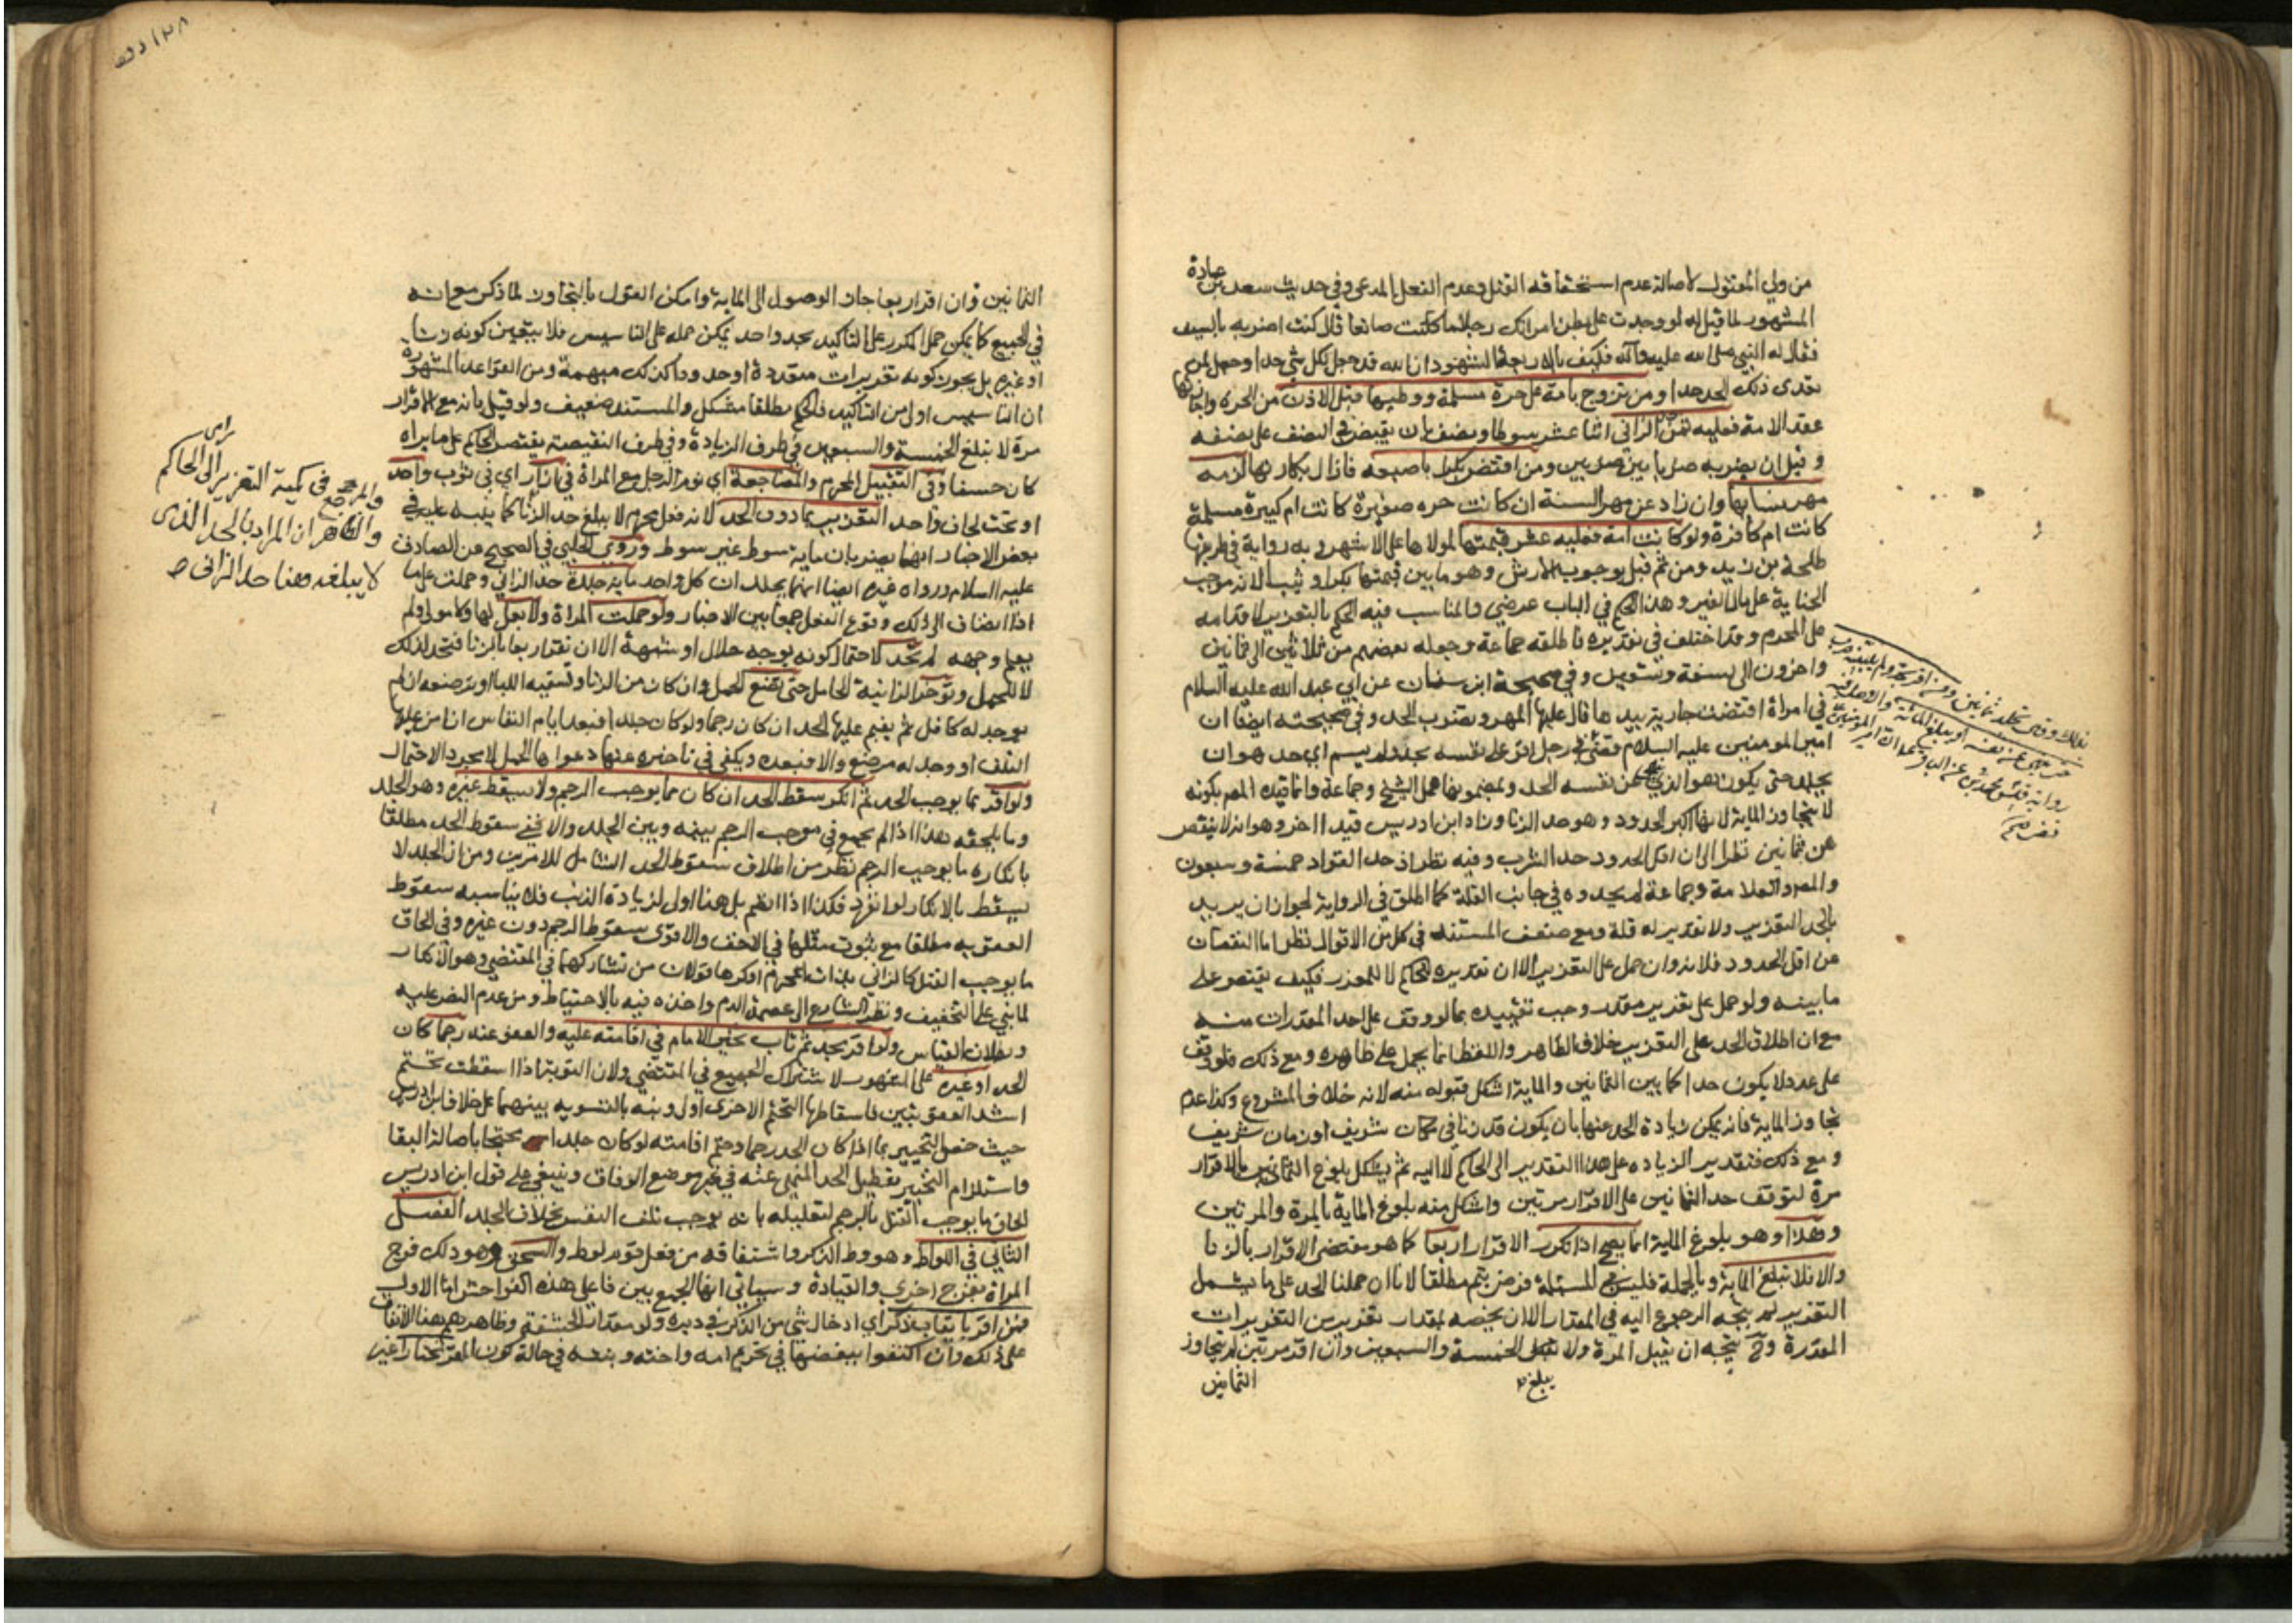 من ولي المقتول لاصالة عدم استحقاقه القتل وعدم الفعل المدعى وفي حديث سعد بن عبادة
المشهور لما قيل له لو وجدت على بطن امراتك رجلا ما كنت صانعا قال كنت اضربه بالسيف
فقال له النبي صلى الله عليه وآله فكيف بالاربعة الشهود ان الله قد جعل لكل شي حدا وجعل لمن
تعدى ذلك الحد حدا ومن تزوج بامة على حرة مسلمة ووطيها قبل الاذن من الحرة واجازتها
عقد الامة فعليه ثمن حد الزاني اثنا عشر سوطا ونصف بان يقبض في النصف على نصفه
وقيل ان يضربه ضربا بين ضربين ومن افتض بكرا باصبعه فازال بكارتها لزمه
مهر نسايها وان زاد عن مهر السنة ان كانت حره صغيرة كانت ام كبيرة مسلمة
كانت ام كافرة ولو كانت امة فعليه عشر قيمتها لمولاها على الاشهر وبه رواية في طريقها
طلحة بن زيد ومن ثم قيل بوجوب الارش وهو ما بين قيمتها بكرا وثيبا لانه موجب
الجناية على مال الغير وهذا الحكم في الباب عرضي والمناسب فيه الحكم بالتعزير لاقدامه
على المحرم وقد اختلف في تقديره فاطلقه جماعة وجعله بعضهم من ثلاثين الى ثمانين
واخرون الى تسعة وتسعين وفي صحيحة ابن سنان عن ابي عبد الله عليه السلام
في امراة افتضت جارية بيدها قال عليها المهر وتضرب الحد وفي صحيحته ايضا ان
امير المومنين عليه السلام قضى في رجل اقر على نفسه بحد ولم يسم اي حد هو ان
يجلد حتى يكون هو الذي ينهى عن نفسه الحد وبمضمونها عمل الشيخ وجماعة وانما قيده المص بكونه
لا يتجاوز الماية لانها اكبر الحدود وهو حد الزنا وزاد ابن ادريس قيدا اخر وهو انه لا ينقص
عن ثمانين نظرا الى ان اقل الحدود حد الشرب وفيه نظر اذ حد القواد خمسة وسبعون
والمص والعلامة وجماعة لم يحدوه في جانب القلة كما اطلق في الرواية لجواز ان يريد
بالحد التعزير ولا تقدير له قلة ومع ضعف المستند في كل من الاقوال نظر اما النقصان
عن اقل الحدود فلانه وان حمل على التعزير الا ان تقديره للحاكم لا للمعزر فكيف يقتصر على
ما يبينه ولو حمل على تعزير مقدر وجب تقييده بما لو وقف على احد المقدرات منه
مع ان اطلاق الحد على التعزير خلاف الظاهر واللفظ انما يحمل على ظاهره ومع ذلك فلو وقف
على عدد لا يكون حدا كما بين الثمانين والماية اشكل قبوله منه لانه خلاف المشروع وكذا عدم
تجاوز الماية فانه يمكن زيادة الحد عنها بان يكون قد زنا في مكان شريف او زمان شريف
ومع ذلك فتقدير الزياده على هذا التقدير الى الحاكم لا اليه ثم يشكل بلوغ الثمانين بالاقرار
مرة لتوقف حد الثمانين على الاقرار مرتين واشكل منه بلوغ الماية بالمرة والمرتين
وهذا وهو بلوغ الماية انما يصح اذا تكرر الاقرار اربعا كما هو مقتضى الاقرار بالزنا
والا فلا تبلغ الماية وبالجملة فليس في المسئلة فرض يتم مطلقا لانا ان حملنا الحد على ما يشمل
التعزير لم يتجه الرجوع اليه في المقدار الا ان يخصه بمقدار تعزير من التعزيرات
المقدرة وح يتجه ان يقبل المرة ولا يبلغ الخمسة والسبعين وان اقر مرتين لم يتجاوز
يبلغ
الثمانين
الثمانين وان اقر اربعا جاز الوصول الى الماية وامكن القول بالتجاوز لما ذكر مع انه
في الجميع كما يمكن حمل المكرر على التاكيد بحد واحد يمكن حمله على التاسيس فلا يتعين كونه زنا
او غيره بل يجوز كونه تعزيرات متعددة او حدودا كذلك مبهمة ومن القواعد المشهورة
ان التاسيس اولى من التاكيد فالحكم مطلقا مشكل والمستند ضعيف ولو قيل بانه مع الاقرار
مرة لا يبلغ الخمسة والسبعين في طرف الزيادة وفي طرف النقيصة يقتصر الحاكم على ما يراه
كان حسنا وفي التقبيل المحرم والمضاجعة اي نوم الرجل مع المراة في ازار اي في ثوب واحد
او تحت لحاف واحد التعزير بما دون الحد لانه فعل محرم لا يبلغ حد الزنا كما ينبه عليه في
بعض الاخبار انهما يضربان ماية سوط غير سوط وروى الحلبي في الصحيح عن الصادق
عليه السلام ورواه غيره ايضا انهما يجلدان كل واحد ماية جلدة حد الزاني وحملت على ما
اذا انضاف الى ذلك وقوع الفعل جمعا بين الاخبار ولو حملت المراة ولا بعل لها ولا مولى ولم
يعلم وجهه لم تحد لاحتمال كونه بوجه حلال او شبهة الا ان تقر اربعا بالزنا فتحد لذلك
لا للحمل وتؤخر الزانية الحامل حتى تضع الحمل وان كان من الزنا وتسقيه اللبا وترضعه ان لم
يوجد له كافل ثم يقيم عليها الحد ان كان رجما ولو كان جلدا فبعد ايام النفاس ان امن عليها
التلف او وجد له مرضع والا فبعده ويكفي في تاخيره عنها دعواها الحمل لا مجرد الاحتمال
ولو اقر بما يوجب الحد ثم انكر سقط الحد ان كان مما يوجب الرجم ولا يسقط غيره وهو الجلد
وما يلحقه هذا اذا لم يجمع في موجب الرجم بينه وبين الجلد والا ففي سقوط الحد مطلقا
بانكاره ما يوجب الرجم نظر من اطلاق سقوط الحد الشامل للامرين ومن ان الجلد لا
يسقط بالانكار لو انفرد فكذا اذا انضم بل هنا اولى لزيادة الذنب فلا يناسبه سقوط
العقوبه مطلقا مع ثبوت مثلها في الاخف والاقوى سقوط الرجم دون غيره وفي الحاق
ما يوجب القتل كالزاني بذات محرم او كرها قولان من تشاركهما في المقتضي وهو الانكار
لما بني على التخفيف ونظر الشارع الى عصمة الدم واخذه فيه بالاحتياط ومن عدم النص عليه
وبطلان القياس ولو اقر بحد ثم تاب تخير الامام في اقامته عليه والعفو عنه رجما كان
الحد او غيره على المشهور لاشتراك الجميع في المقتضي ولان التوبة اذا اسقطت تحتم
اشد العقوبتين فاسقاطها لتحتم الاخرى اولى ونبه بالتسويه بينهما على خلاف ابن ادريس
حيث خص التخيير بما اذا كان الحد رجما وحتم اقامته لو كان جلدا محتجا باصالة البقا
واستلزام التخيير تعطيل الحد المنهي عنه في غير موضع الوفاق وينبغي على قول ابن ادريس
الحاق ما يوجب القتل بالرجم لتعليله بانه يوجب تلف النفس بخلاف الجلد الفصل
الثاني في اللواط وهو وط الذكر واشتقاقه من فعل قوم لوط والسحق وهو دلك فرج
المراة بفرج اخرى والقيادة وسياتي انها الجمع بين فاعلي هذه الفواحش اما الاول
فمن اقر بايقاب ذكر اي ادخال شي من الذكر في دبره ولو مقدار الحشفة وظاهرهم هنا الاتفاق
على ذلك وان اكتفوا ببعضها في تحريم امه واخته وبنته في حالة كون المقر مختارا غير
والمرجع في كمية التعزير الى راى الحاكم
والظاهر ان المراد بالحد الذى
لا يبلغه هنا حد الزانى ص